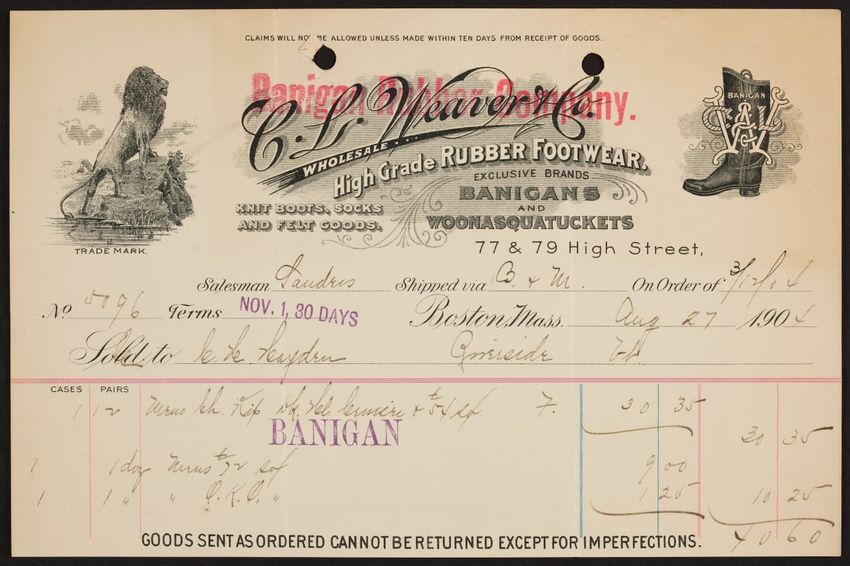 CLAIMS WILL NOT BE ALLOWED UNLESS MADE WITHIN TEN DAYS FROM RECEIPT OF GOODS.
Banigan Rubber Company.
C. L. Weaver & Co.
WHOLESALE...
High Grade RUBBER FOOTWEAR.
EXCLUSIVE BRANDS
BANIGANS
AND
WOONASQUATUCKETS
KNIT BOOTS, SOCKS
AND FELT GOODS.
77 & 79 High Street,
TRADE MARK.
BANIGAN
Salesman Shipped via B. & M. On Order of 3/12/04
No 5096 Terms NOV. 1, 30 DAYS Boston, Mass. Aug 27 1904
Sold to Hayden Riverside Vt.
CASES PAIRS
1 12 Mens 7. 30 35
BANIGAN
30 35
1 1 doz Mens 9 00
1 1 " " " 1 25 10 25
40 60
GOODS SENT AS ORDERED CANNOT BE RETURNED EXCEPT FOR IMPERFECTIONS.